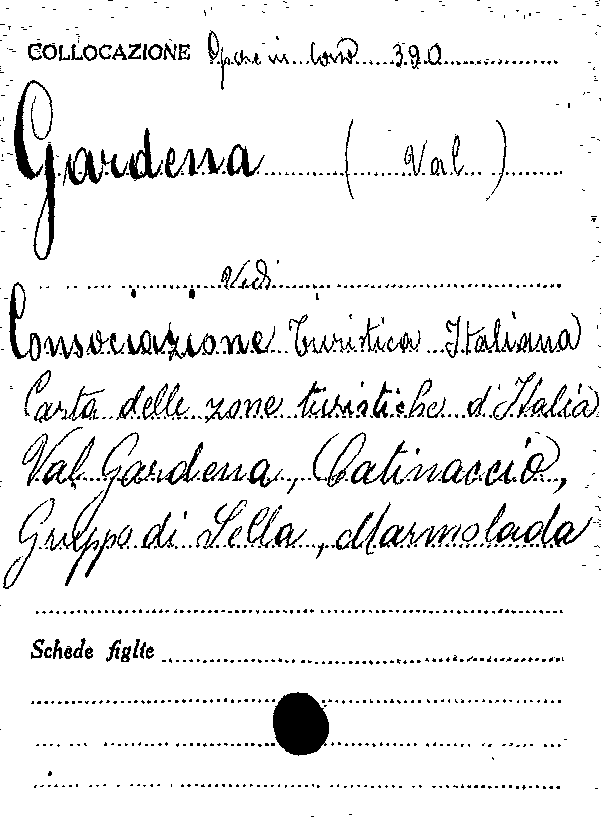 COLLOCAZIONE Opere in corso 390
Gardena (Val)
Vedi
Consociazione Turistica Italiana
Carta delle zone turistiche d'Italia
Val Gardena, Catinaccio,
Gruppo di Sella, Marmolada
Schede figlie